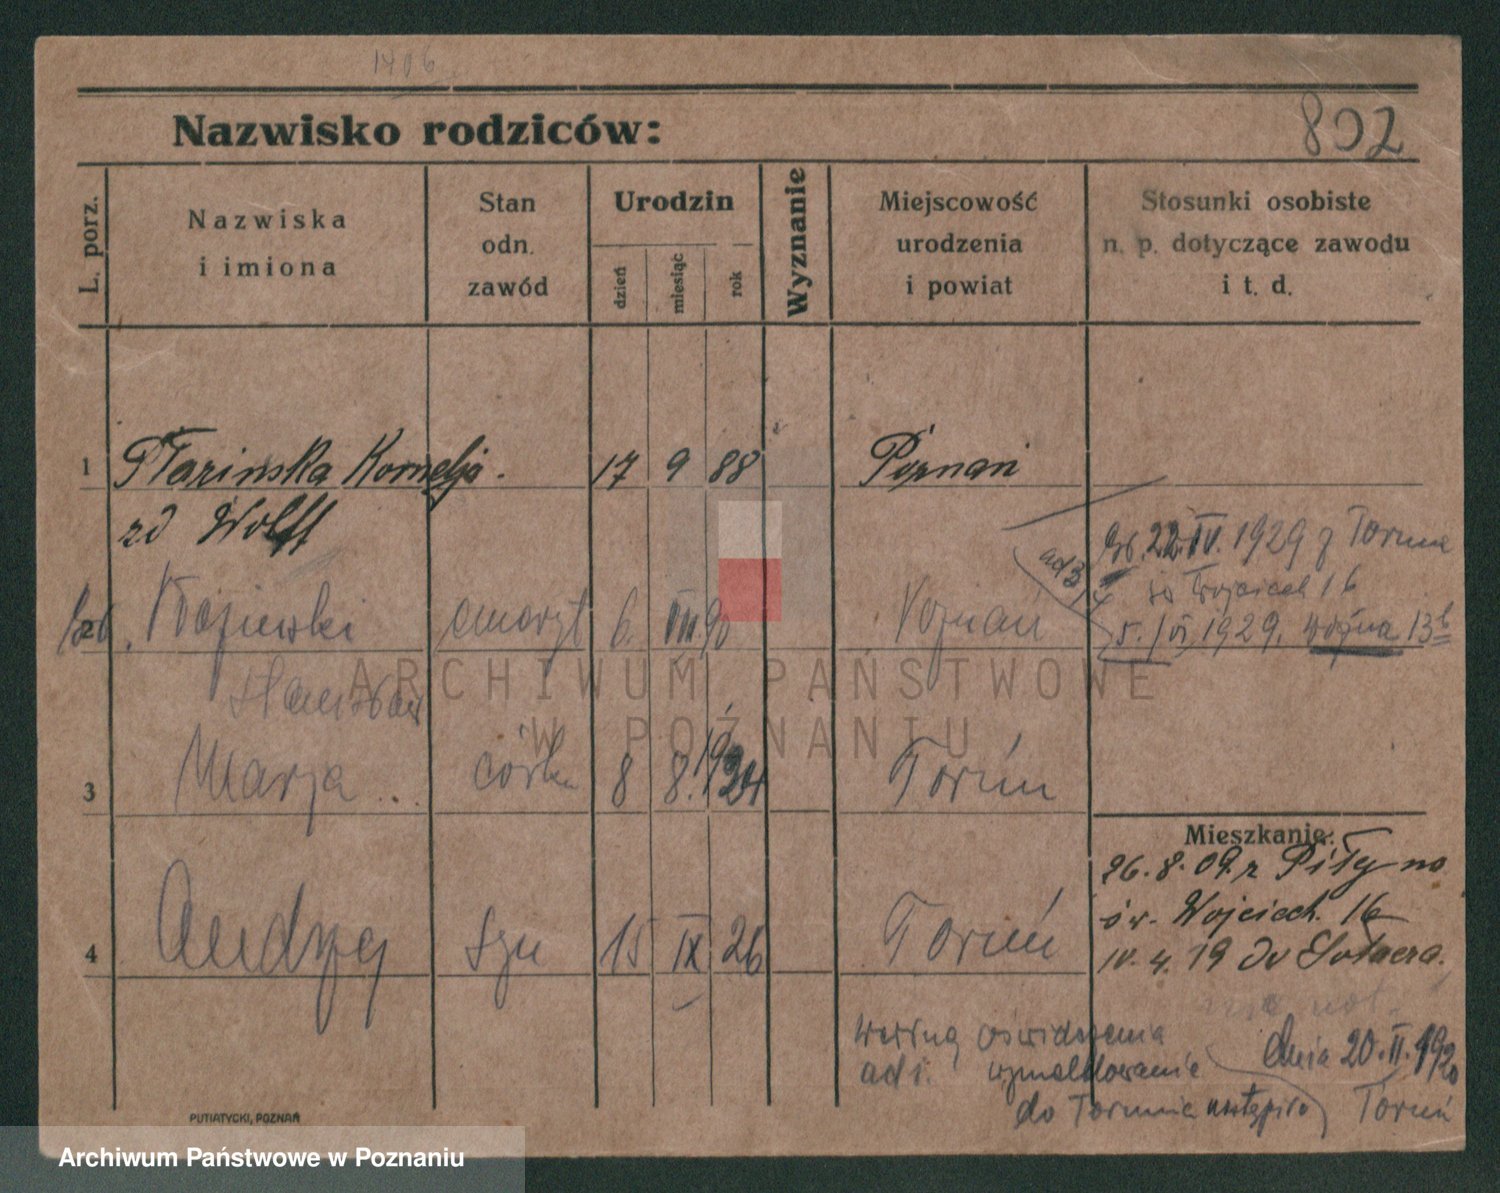 1406
Nazwisko rodziców:
802
L. porz.
Nazwiska
i imiona
Stan
odn.
zawód
Urodzin
dzień
miesiąc
rok
Wyznanie
Miejscowość
urodzenia
i powiat
Stosunki osobiste
n. p. dotyczące zawodu
i t. d.
1 Kornelja 17 9 88 Poznań
zd Wolff
22 IV. 1929 z Torunia
ad 3/4 Wojciech 16
2 emeryt 6. VII. 90 Poznań
5. VI. 1929. 13b
ARCHIWUM PAŃSTWOWE
W POZNANIU
3 Marja córka 8 8. 1924 Toruń
Mieszkanie:
26. 8. 09. z Piły na
św. Wojciech. 16
4 Andrzej syn 15 IX 26 Toruń
4. 19 do Sołacza.
według oświadczenia dnia 20. II. 1920
ad 1. wymeldowanie
do Torunia nastąpiło Toruń
PUTIATYCKI, POZNAŃ
Archiwum Państwowe w Poznaniu